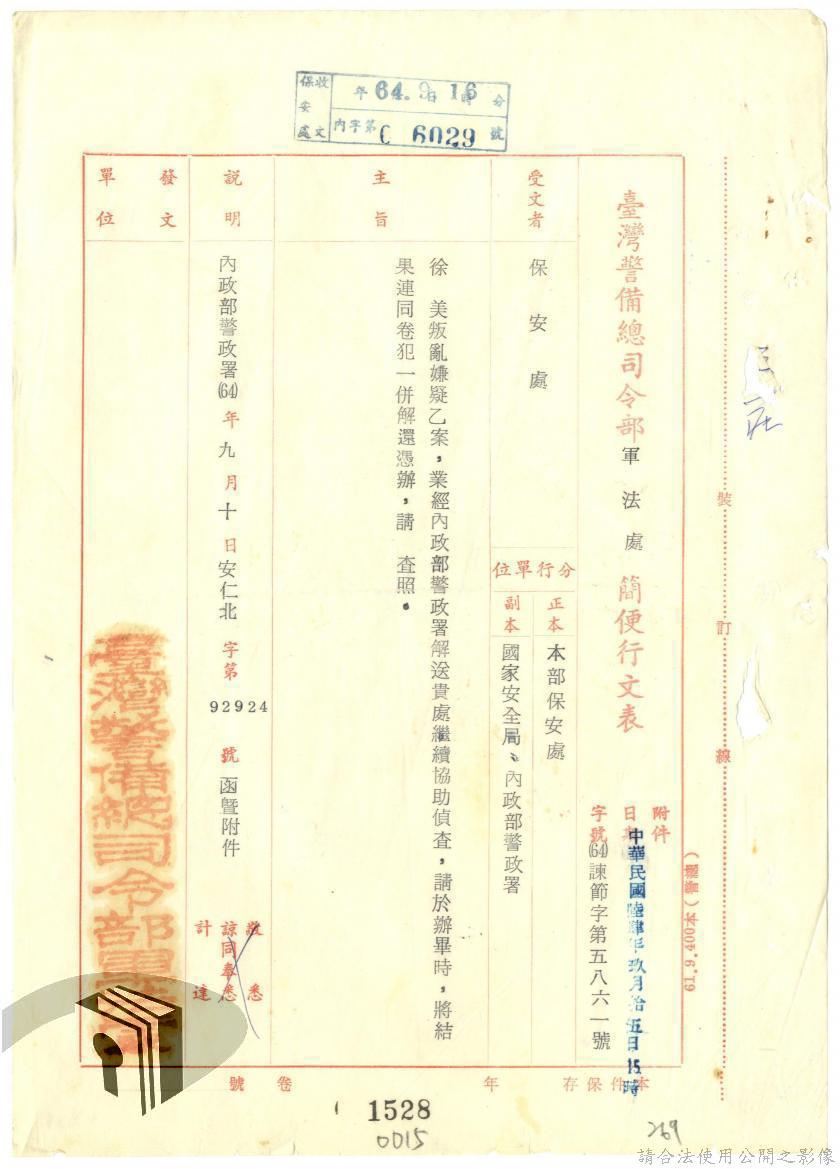 保安處收文
年64.9日16時分
內字第C 6029號
臺灣警備總司令部軍法處簡便行文表
附件
日期 中華民國陸肆年玖月拾伍日15時
字號 (64)諫節字第五八六一號
受文者 保安處
分行單位
正本 本部保安處
副本 國家安全局、內政部警政署
主旨
徐 美叛亂嫌疑乙案，業經內政部警政署解送貴處繼續協助偵查，請於辦畢時，將結
果連同卷犯一併解還憑辦，請 查照。
說明
內政部警政署(64)年九月十日安仁北 字第92924號函暨附件
敬悉
諒同奉悉
計達
發文單位
臺灣警備總司令部軍法處
裝
訂
線
61.9.400本
本件保存 年 卷 號
1528
0015
269
請合法使用公開之影像